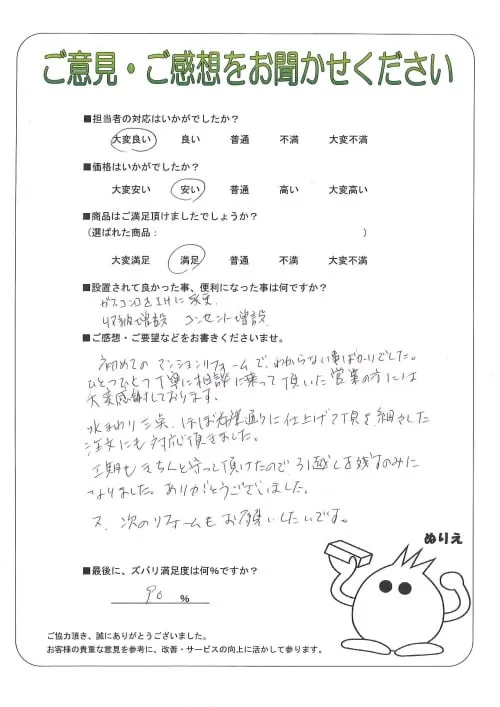 ご意見・ご感想をお聞かせください
■担当者の対応はいかがでしたか?
大変良い 良い 普通 不満 大変不満
■価格はいかがでしたか?
大変安い 安い 普通 高い 大変高い
■商品はご満足頂けましたでしょうか?
(選ばれた商品: )
大変満足 満足 普通 不満 大変不満
■設置されて良かった事、便利になった事は何ですか?
ガスコンロを IHに変更
収納増設 コンセント増設
■ご感想・ご要望などをお書きくださいませ。
初めてのマンションリフォームで、わからない事ばかりでした。
ひとつひとつ丁寧に相談に乗って頂いた営業の方には
大変感謝しております。
水まわり三点、ほぼ希望通りに仕上げて頂き、細々した
注文にも対応頂きました。
工期もきちんと守って頂けたので、引越しを残すのみに
なりました。ありがとうございました。
又、次のリフォームもお願いしたいです。
ぬりえ
■最後に、ズバリ満足度は何%ですか?
90 %
ご協力頂き、誠にありがとうございました。
お客様の貴重な意見を参考に、改善・サービスの向上に活かして参ります。